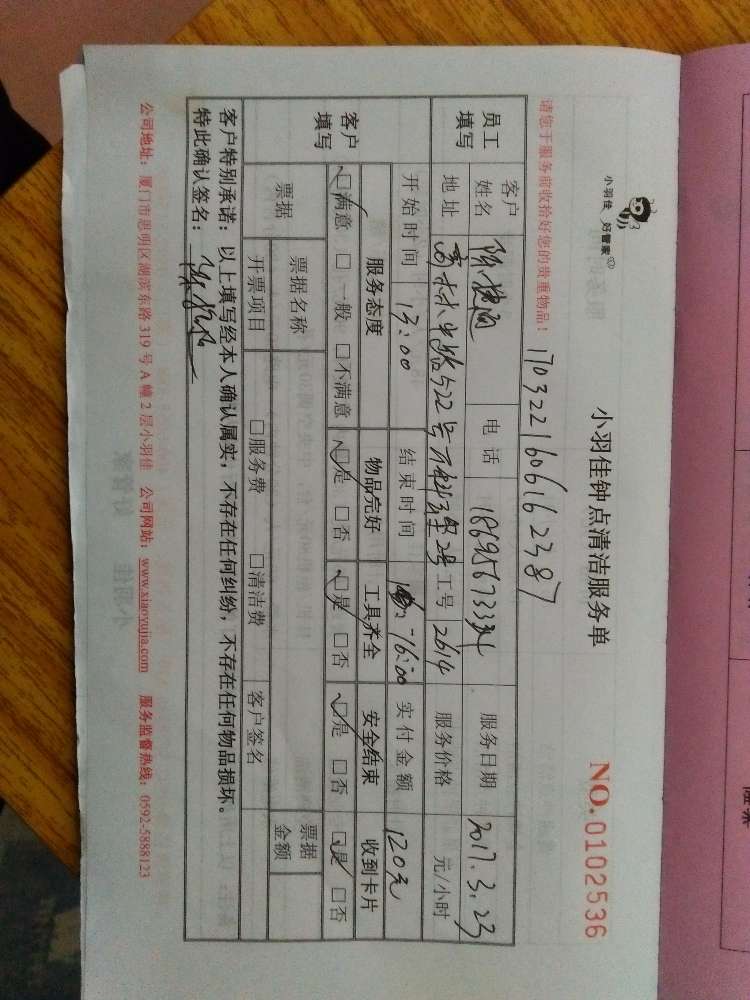 小羽佳 好管家
小羽佳钟点清洁服务单
NO.0102536
请您于服务前收拾好您的贵重物品！
1703221606162387
员工填写
客户姓名
电话
服务日期 2017.3.23
地址
工号 2614
服务价格 元/小时
开始时间 13:00
结束时间 16:00
实付金额 120元
客户填写
服务态度 物品完好 工具齐全 安全结束 收到卡片
□满意 □一般 □不满意 □是 □否 □是 □否 □是 □否 □是 □否
票据 票据名称 票据金额
开票项目 □服务费 □清洁费 客户签名
客户特别承诺：以上填写经本人确认属实，不存在任何纠纷，不存在任何物品损坏。
特此确认签名：
公司地址：厦门市思明区湖滨东路 319 号 A 幢 2 层小羽佳 公司网站：www.xiaoyujia.com 服务监督热线：0592-5888123